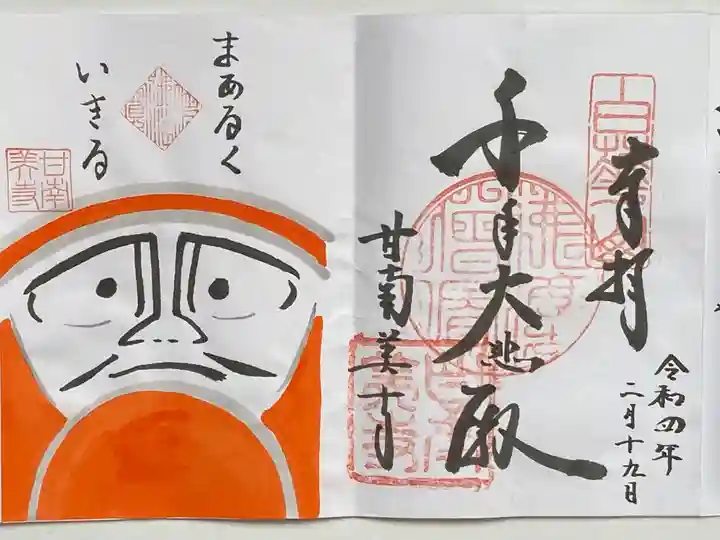 奉拝
千手大悲殿
甘南美寺
令和四年
二月十九日
まあるく
いきる
甘南
美寺